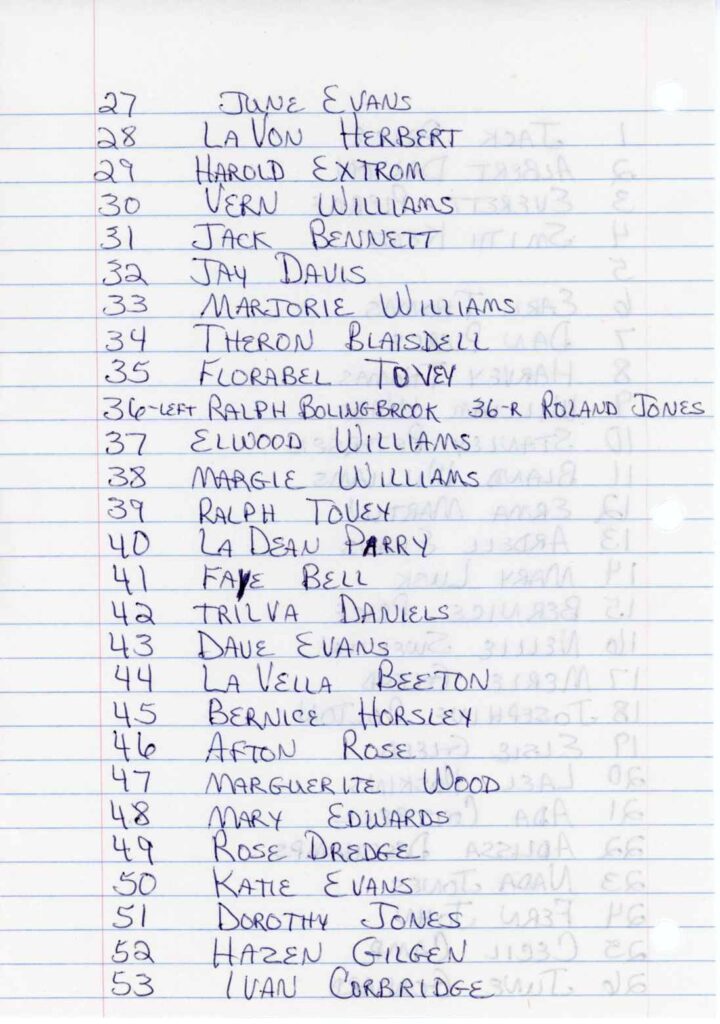 27 JUNE EVANS
28 LA VON HERBERT
29 HAROLD EXTROM
30 VERN WILLIAMS
31 JACK BENNETT
32 JAY DAVIS
33 MARJORIE WILLIAMS
34 THERON BLAISDELL
35 FLORABEL TOVEY
36-LEFT RALPH BOLINGBROOK 36-R ROLAND JONES
37 ELWOOD WILLIAMS
38 MARGIE WILLIAMS
39 RALPH TOVEY
40 LA DEAN PARRY
41 FAYE BELL
42 TRILVA DANIELS
43 DAVE EVANS
44 LA VELLA BEETON
45 BERNICE HORSLEY
46 AFTON ROSE
47 MARGUERITE WOOD
48 MARY EDWARDS
49 ROSE DREDGE
50 KATIE EVANS
51 DOROTHY JONES
52 HAZEN GILGEN
53 IVAN CORBRIDGE